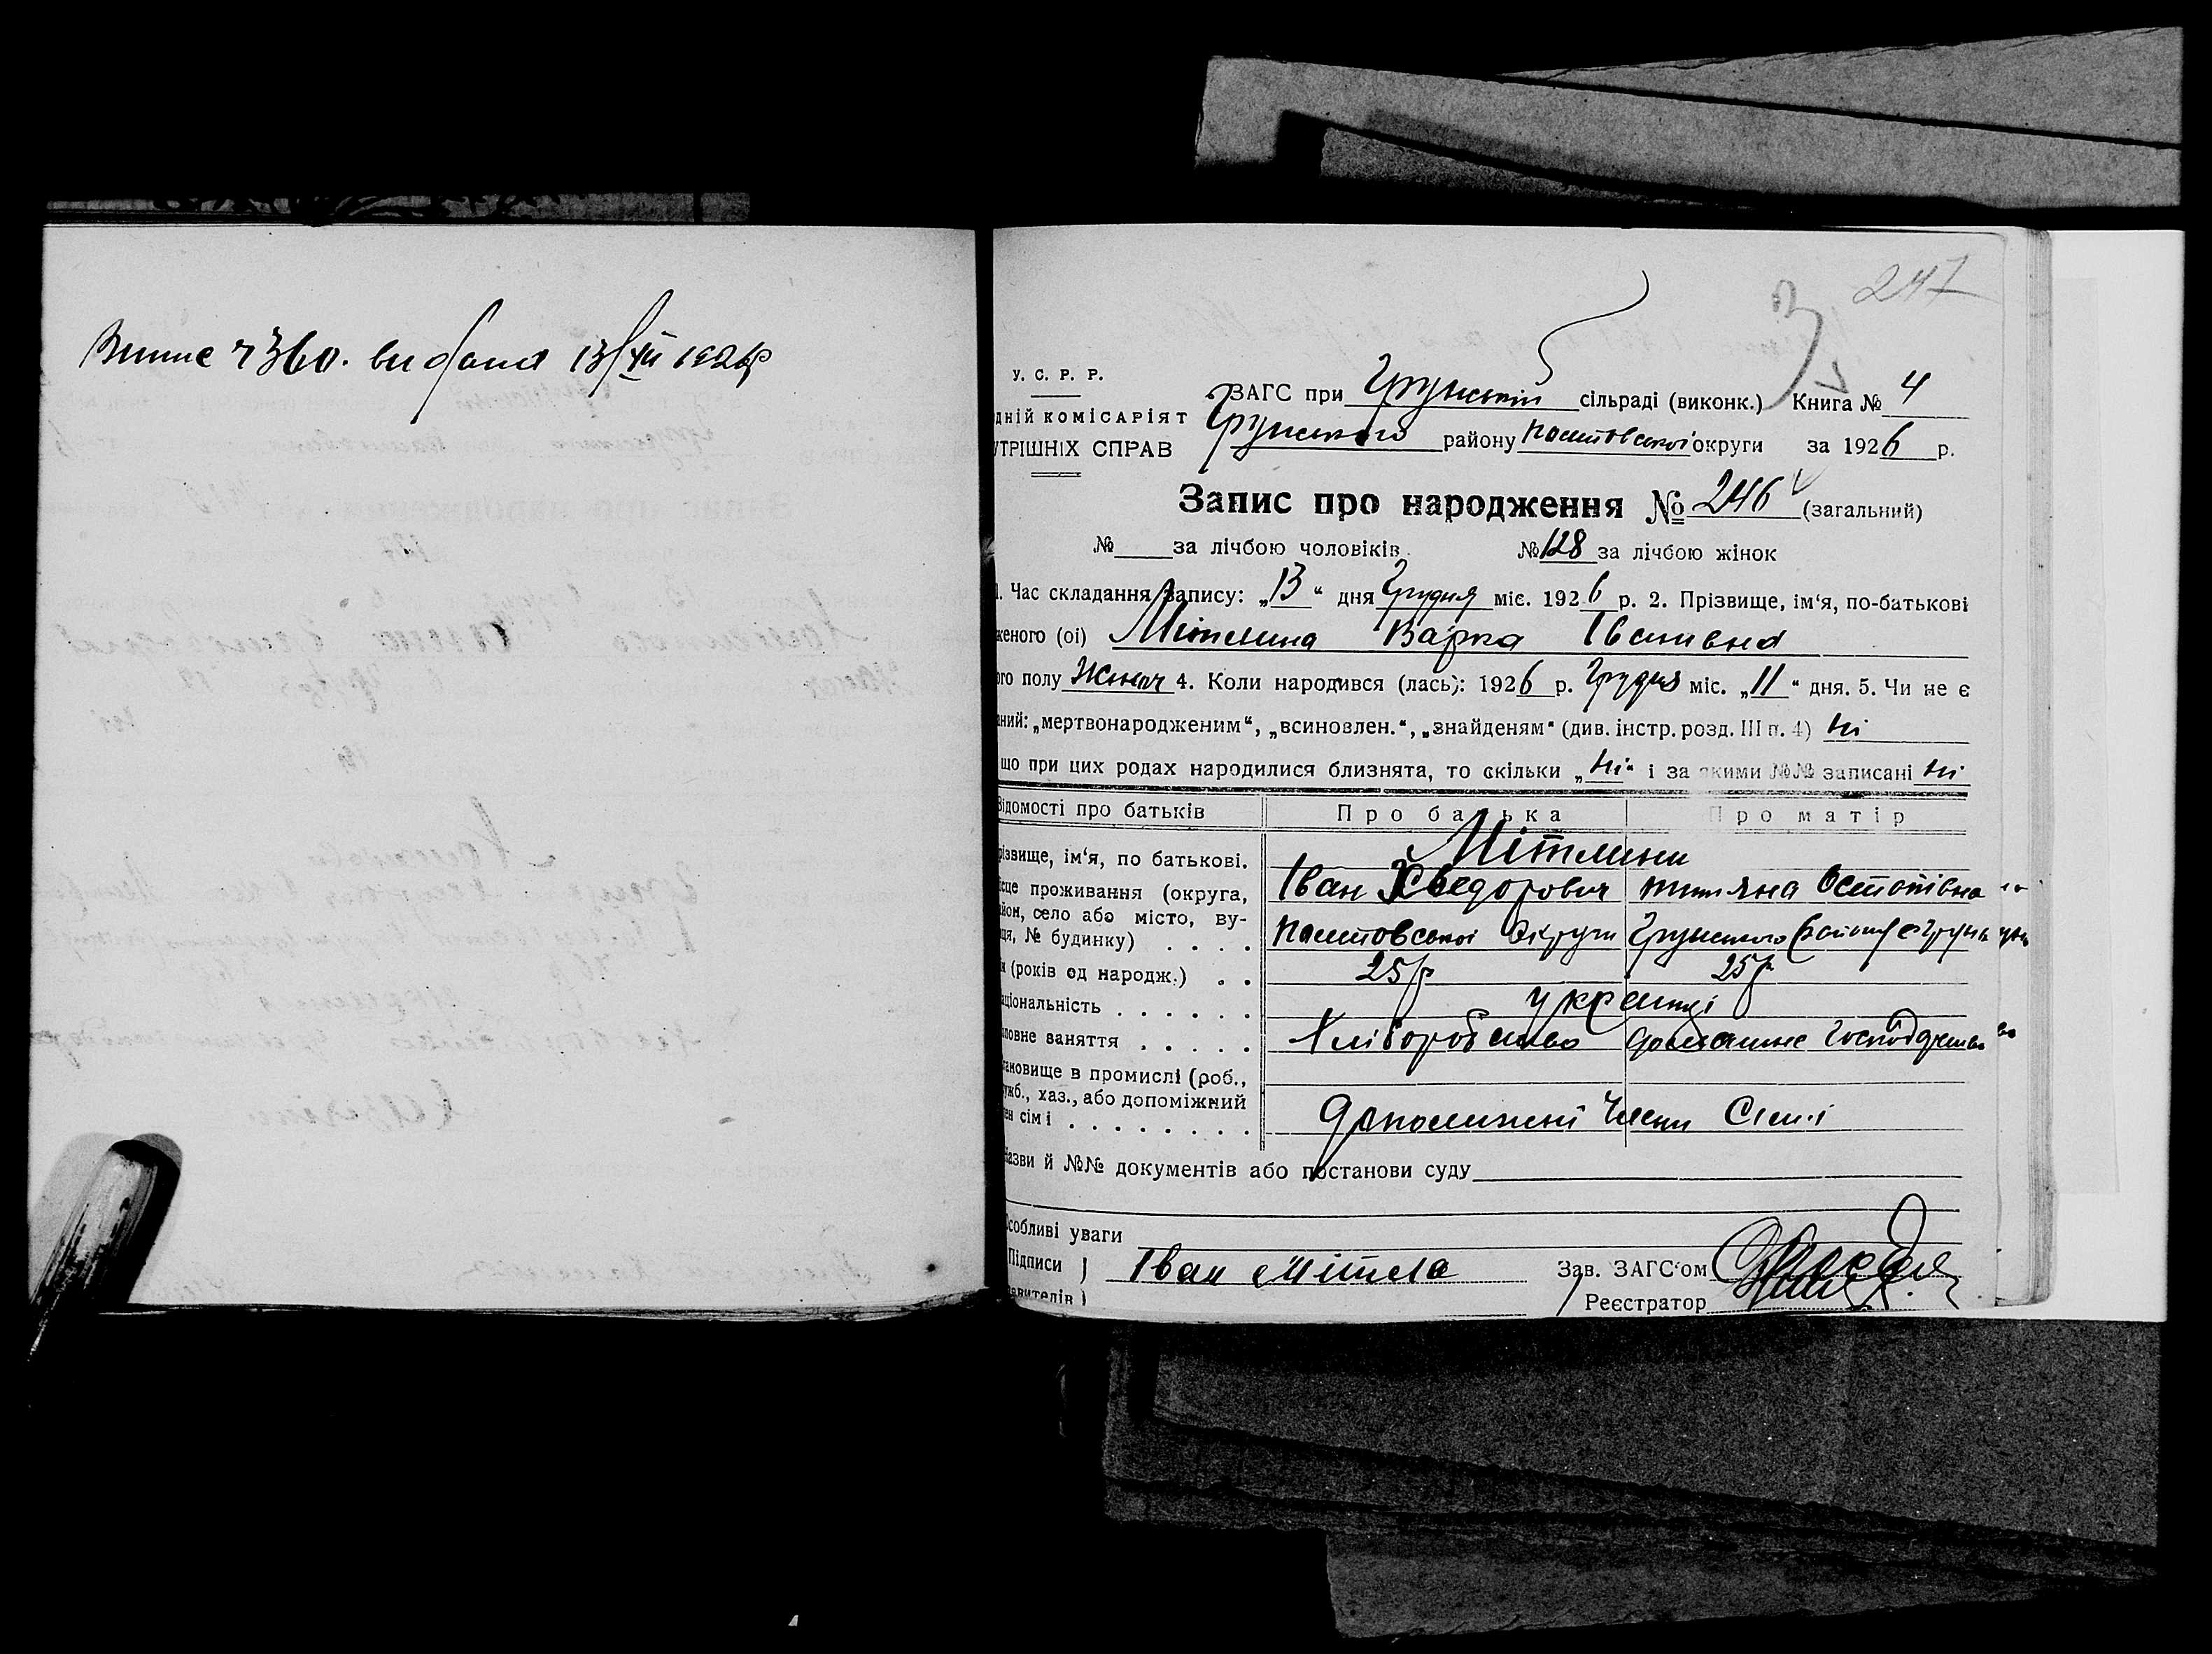 Витяг ч 360. видана 13/XII 1926р
247
У. С. Р. Р.
ЗАГС при Грунській сільраді (виконк.) Книга № 4
дній комісаріят
Грунського району Полтовської округи за 1926 р.
УТРІШНІХ СПРАВ
Запис про народження № 246 (загальний)
№ за лічбою чоловіків. № 128 за лічбою жінок
1. Час складання запису: „13“ дня Грудня міс. 1926 р. 2. Прізвище, ім‘я, по-батькові
женого (ої) Мітлина Варка Іванівна
ого полу Жіноч 4. Коли народився (лась): 1926 р. Грудня міс. „11“ дня. 5. Чи не є
аний: „мертвонародженим“, „всиновлен.“, „знайденям“ (див. інстр. розд. III п. 4) ні
що при цих родах народилися близнята, то скільки „ні“ і за якими №№ записані ні
Відомості про батьків Про батька Про матір
різвище, ім‘я, по батькові. Мітлини
Іван Хведорович Остапівна
ісце проживання (округа,
йон, село або місто, ву-
ця, № будинку) . . . . Полтовської Округи Грунського району с Грунь
к (років од народж.) . . 25р 25р
аціональність . . . . . . українці
ловне заняття . . . . . Хліборобство домашнє господарство
тановище в промислі (роб.,
ужб., хаз., або допоміжний
ен сімі . . . . . . . . Допоміжні Члени Сімі
Назви й №№ документів або постанови суду
Особливі уваги
Підписи ) Іван Мітла Зав. ЗАГС‘ом
авителів ) Реєстратор